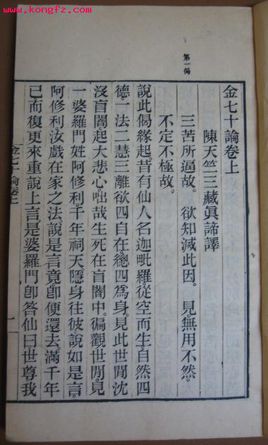 www.kongfz.com
金七十論卷上
陳天竺三藏眞諦譯
第一偈
三苦所逼故。欲知滅此因。見無用不然。
不定不極故。
說此偈緣起昔有仙人名迦毗羅從空而生自然四
德一法二慧三離欲四自在總四爲身見此世間沈
沒盲闇起大悲心咄哉生死在盲闇中徧觀世間見
一婆羅門姓阿修利千年祠天隱身往彼說如是言
阿修利汝戲在家之法說是言竟卽便還去滿千年
已而復更來重說上言是婆羅門卽答仙曰世尊我
金七十論卷上
一